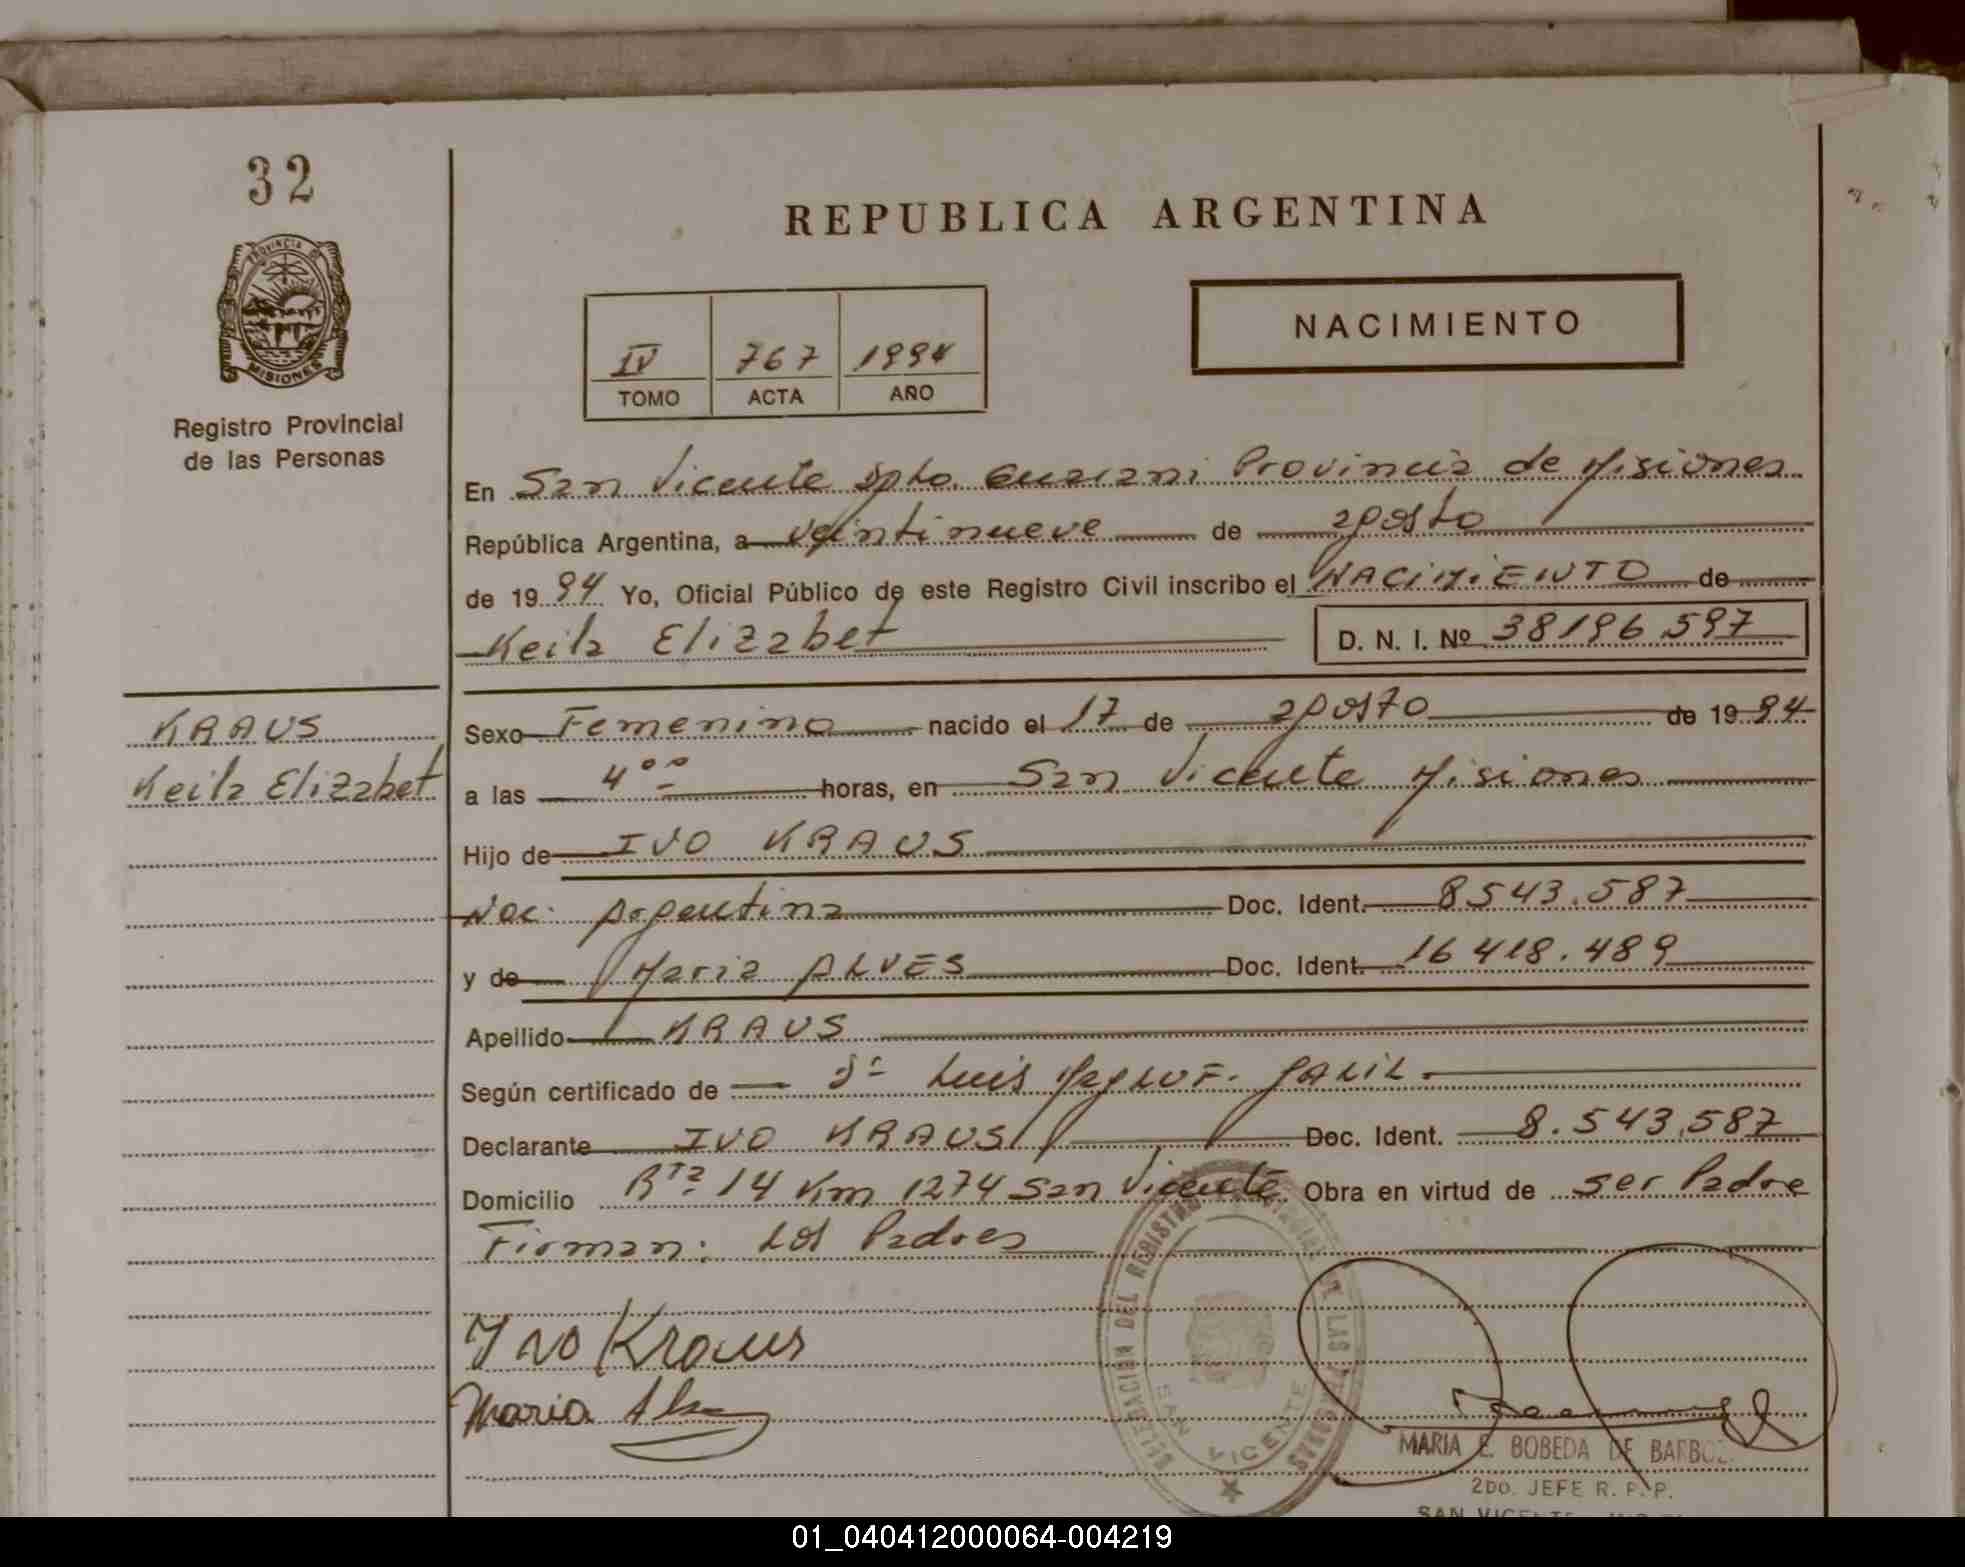 32
REPUBLICA ARGENTINA
PROVINCIA DE
MISIONES
Registro Provincial
de las Personas
NACIMIENTO
IV 767 1994
TOMO ACTA AÑO
En San Vicente Dpto. Guarani Provincia de Misiones
República Argentina, a veintinueve de agosto
de 1994 Yo, Oficial Público de este Registro Civil inscribo el NACIMIENTO de
Keila Elizabet D. N. I. Nº 38196.597
KRAUS
Keila Elizabet
Sexo Femenino nacido el 17 de agosto de 1994
a las 4⁰⁰ horas, en San Vicente Misiones
Hijo de IVO KRAUS
Nac. Argentina Doc. Ident. 8543.587
y de Maria ALVES Doc. Ident. 16418.489
Apellido KRAUS
Según certificado de Dr Luis GALIL.
Declarante IVO KRAUS Doc. Ident. 8.543.587
Domicilio Rta 14 Km 1274 San Vicente Obra en virtud de ser Padre
Firman: Los Padres
Ivo Kraus
Maria
DELEGACION DEL REGISTRO PROVINCIAL DE LAS PERSONAS
SAN VICENTE
MARIA E. BOBEDA DE BARBOZ
2DO. JEFE R. P. P.
SAN VICENTE
01_040412000064-004219